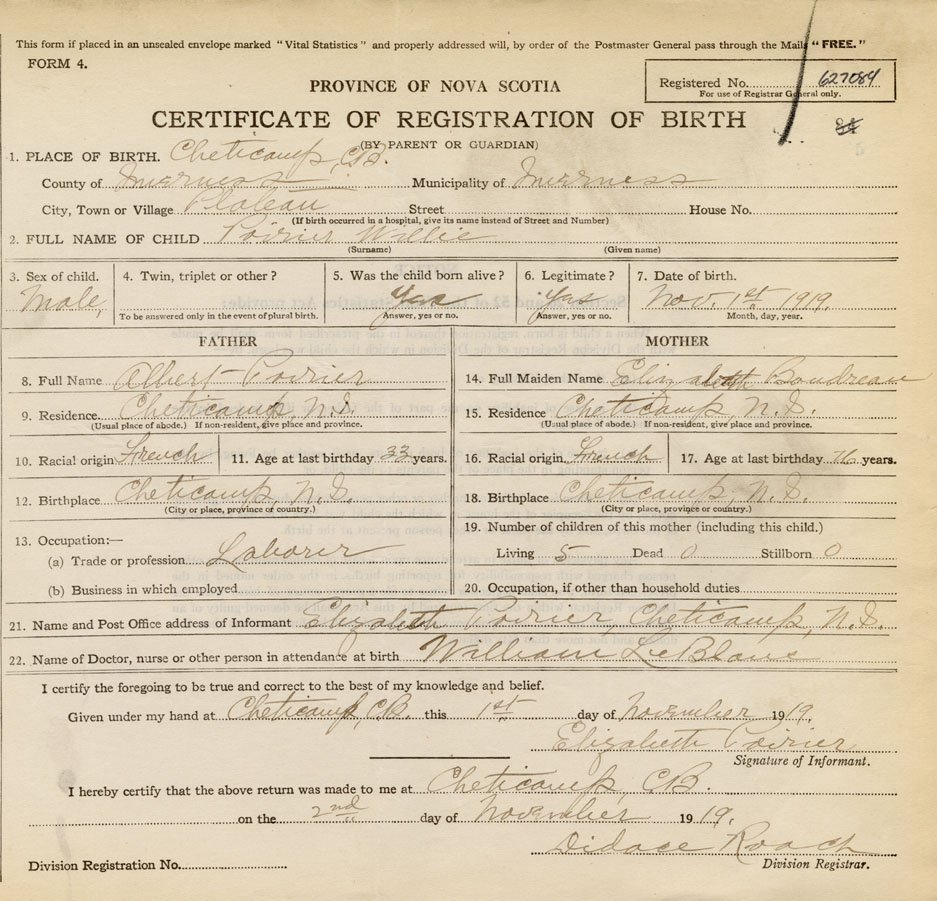 This form if placed in an unsealed envelope marked "Vital Statistics" and properly addressed will, by order of the Postmaster General pass through the Mails "FREE."
FORM 4.
Registered No. 627084
For use of Registrar General only.
PROVINCE OF NOVA SCOTIA
CERTIFICATE OF REGISTRATION OF BIRTH
84
(BY PARENT OR GUARDIAN)
1. PLACE OF BIRTH. Cheticamp, C.B.
County of Inverness Municipality of Inverness
City, Town or Village Plateau Street House No.
(If birth occurred in a hospital, give its name instead of Street and Number)
2. FULL NAME OF CHILD Poirier Willie
(Surname) (Given name)
3. Sex of child. 4. Twin, triplet or other? 5. Was the child born alive? 6. Legitimate? 7. Date of birth.
Male, Yes Yes Nov. 1st 1919.
To be answered only in the event of plural birth. Answer, yes or no. Answer, yes or no. Month, day, year.
FATHER MOTHER
8. Full Name Albert Poirier 14. Full Maiden Name Elizabeth Boudreau
9. Residence. Cheticamp, N.S. 15. Residence Cheticamp, N.S.
(Usual place of abode.) If non-resident, give place and province. (Usual place of abode.) If non-resident, give place and province.
10. Racial origin French 11. Age at last birthday 33 years. 16. Racial origin French 17. Age at last birthday years.
12. Birthplace Cheticamp, N.S. 18. Birthplace Cheticamp, N.S.
(City or place, province or country.) (City or place, province or country.)
13. Occupation:— 19. Number of children of this mother (including this child.)
(a) Trade or profession Laborer Living 5 Dead 0 Stillborn 0
(b) Business in which employed 20. Occupation, if other than household duties
21. Name and Post Office address of Informant Elizabeth Poirier, Cheticamp, N.S.
22. Name of Doctor, nurse or other person in attendance at birth William LeBlanc
I certify the foregoing to be true and correct to the best of my knowledge and belief.
Given under my hand at Cheticamp, C.B. this 1st day of November 1919.
Elizabeth Poirier
Signature of Informant.
I hereby certify that the above return was made to me at Cheticamp, C.B.
on the 2nd day of November 1919.
Didace Roach
Division Registration No. Division Registrar.